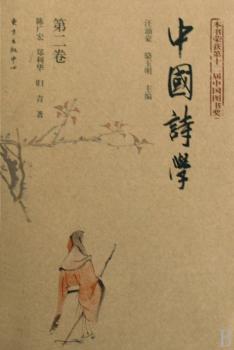 本书荣获第十一届中国图书奖
中國詩學
汪涌豪 骆玉明 主编
第二卷
陈广宏 郑利华 归青 著
东方出版中心